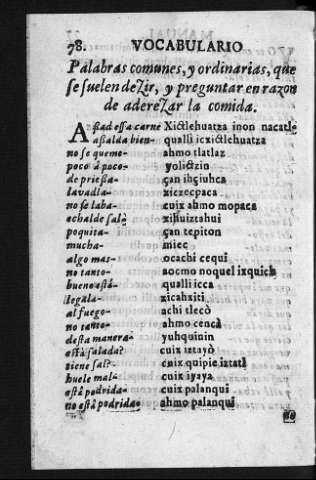 78. VOCABULARIO
Palabras comunes, y ordinarias, que
se suelen dezir, y preguntar en razon
de aderezar la comida.
Assad essa carne Xictlehuatza inon nacatle
assalda bien- qualli icxictlehuatza
no se queme- ahmo tlatlaz
poco à poco- yolictzin
de priessa- çan ihçiuhca
lavadla- xiczecpaca
no se laba- cuix ahmo mopaca
echalde sal- xihuiztahui
poquita- çan tepiton
mucha- miec
algo mas- ocachi cequi
no tanto- aocmo noquel izquich
bueno está- qualli icca
llegala- xicahxiti
al fuego- achi tlecò
no tanto- ahmo cencà
desta manera- yuhquinin
està salada? cuix iztayò
tiene sal? cuix quipie iztatl
huele mal- cuix iyaya
està podrida- cuix palanqui
no està podrida- ahmo palanqui